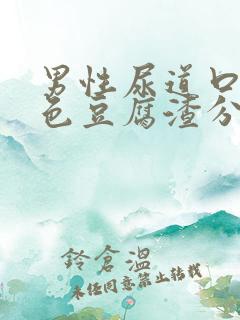 男性尿道口
色豆腐渣分
鈴倉溫
未经同意禁止转载